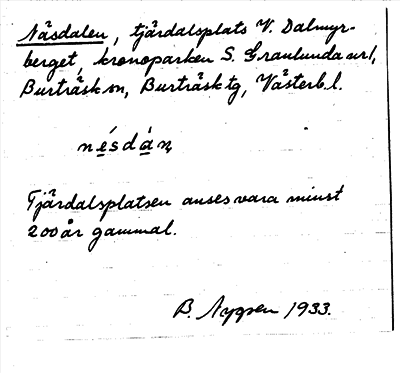 Näsdalen, tjärdalsplats V. Dalmyr-
berget, kronoparken S. Granlunda nr 1,
Burträsk sn, Burträsk tg, Västerb. l.
nésdán
Tjärdalsplatsen anses vara minst
200 år gammal.
B. 1933.